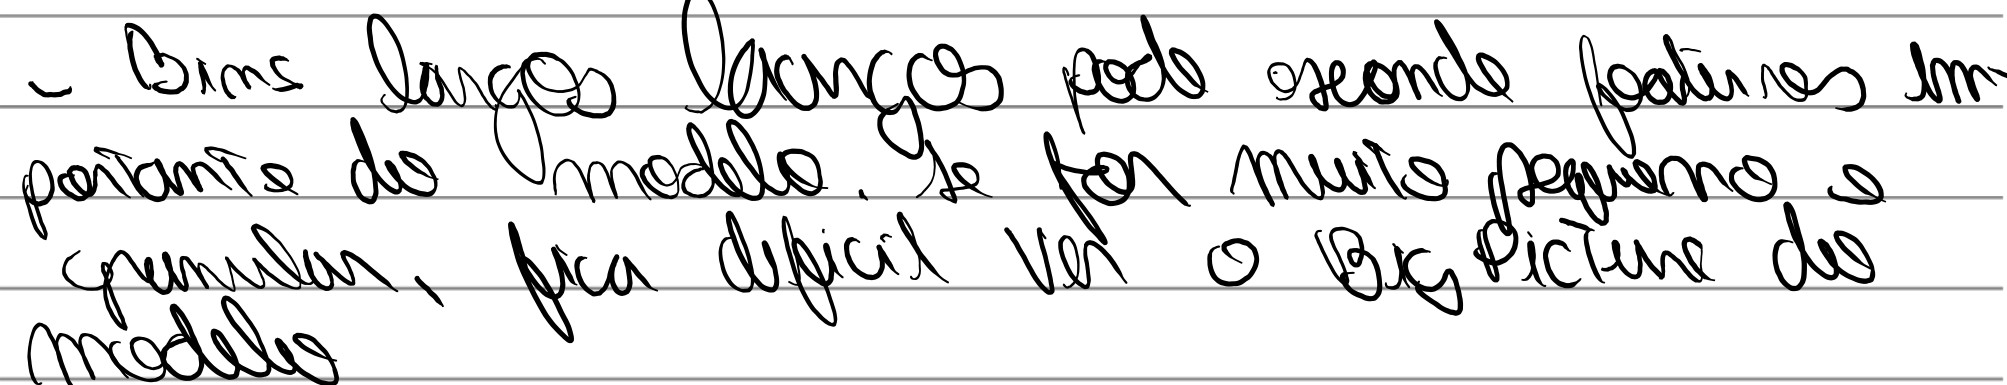 - Bins largos larngos pode esconde features im-
portante do modelo. Se for muito pequeno e
granular, fica dificil ver o Big Picture do
modelo